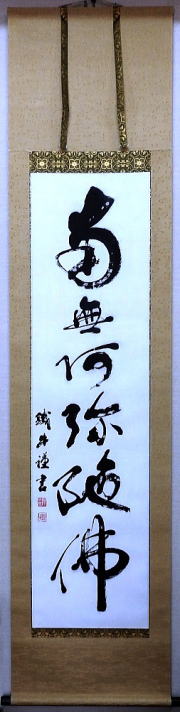 南無阿弥陀佛
鐵牛謹書